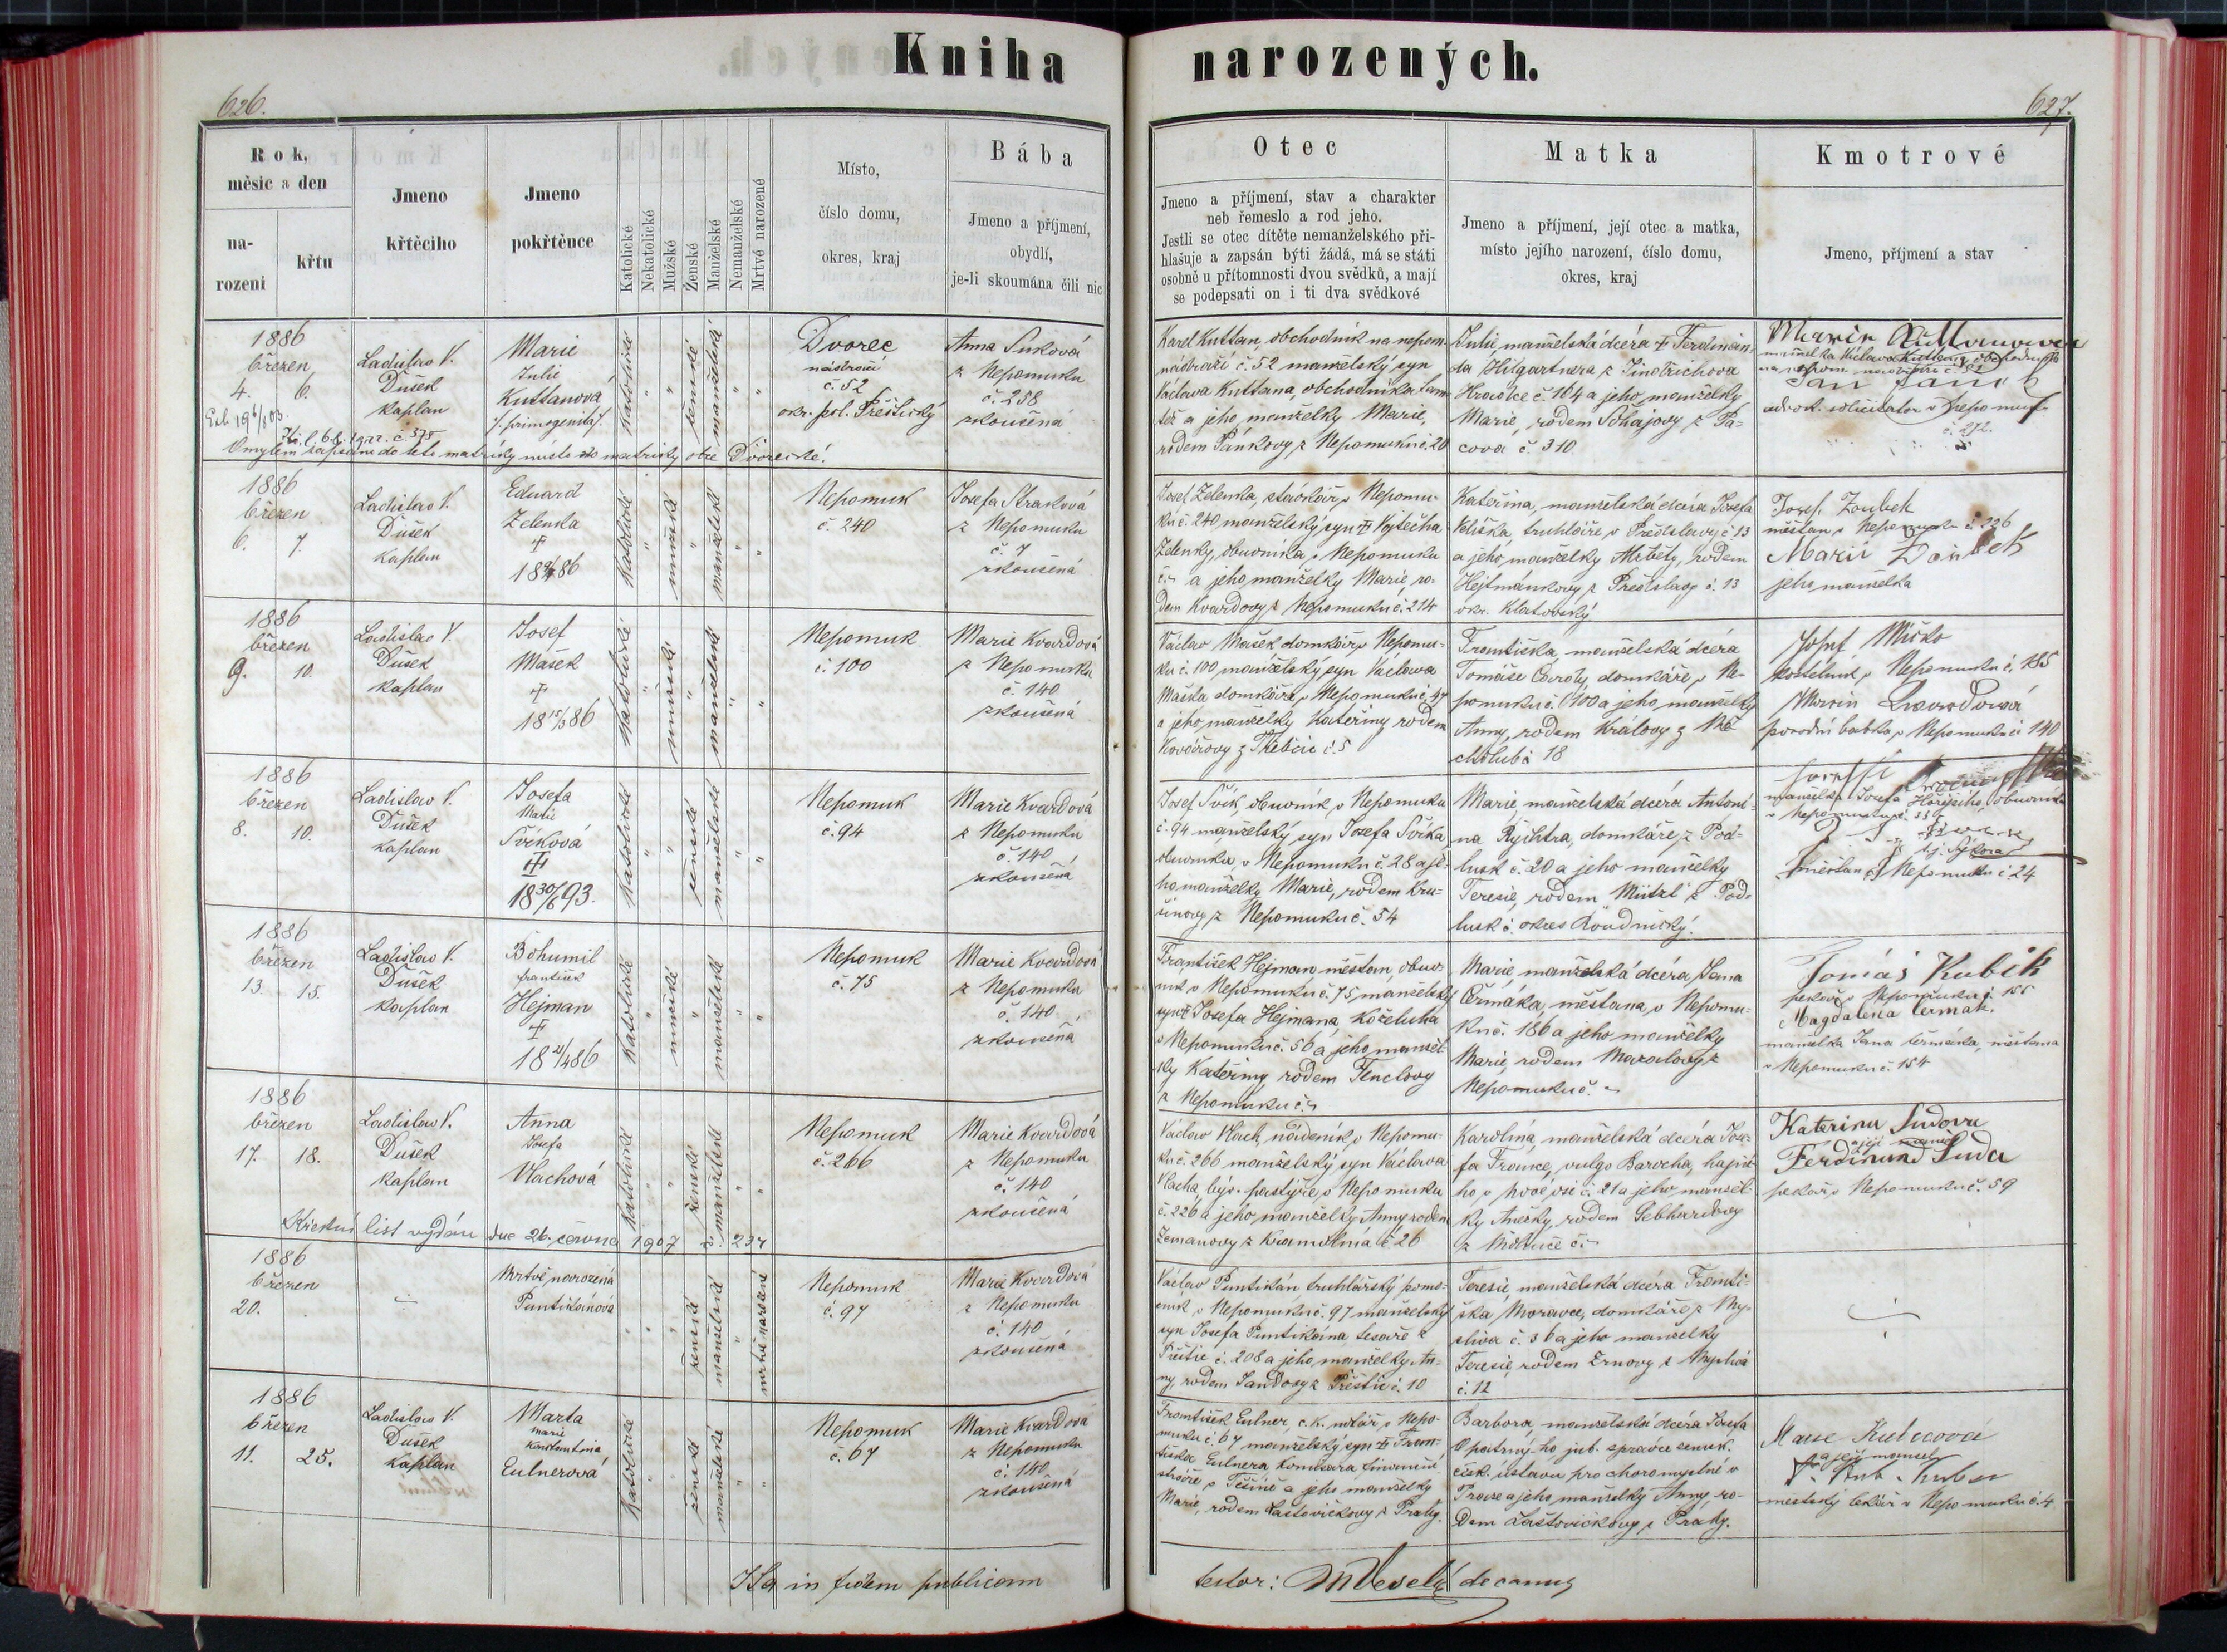 Kniha narozených.
626.
627.
Rok, měsíc a den
na-
rozeni
křtu
Jmeno
křtěcího
Jmeno
pokřtěnce
Katolické
Nekatolické
Mužské
Ženské
Manželské
Nemanželské
Mrtvé narozené
Místo,
číslo domu,
okres, kraj
Bába
Jmeno a příjmení,
obydlí,
je-li skoumána čili nic
Otec
Jmeno a příjmení, stav a charakter
neb řemeslo a rod jeho.
Jestli se otec dítěte nemanželského při-
hlašuje a zapsán býti žádá, má se státi
osobně u přítomnosti dvou svědků, a mají
se podepsati on i ti dva svědkové
Matka
Jmeno a příjmení, její otec a matka,
místo jejího narození, číslo domu,
okres, kraj
Kmotrové
Jmeno, příjmení a stav
1886
březen
4. 6.
Ladislav V.
Dušek
kaplan
Marie
Julie
Kuttanová
katolické
ženské
manželské
Dvorec
nádraží
č. 52
okr. pol. Přeštický
Anna
z Nepomuku
č. 258
zkoušená
Omylem zapsáno do této matriky místo do matriky obce Dvorecké!
Karel Kuttan, obchodník na nepom.
nádraží č. 52 manželský syn
Václava Kuttana, obchodníka tam
též a jeho manželky Marie,
rodem Pankovy z Nepomuku č. 20
Julie, manželská dcera † Ferdinan-
da Hilgartnera z Jindřichova
Hradce č. 104 a jeho manželky
Marie, rodem z Pa-
cova č. 310
manželka Václava Kuttana obchodníka
Jan
advok. solicitator v Nepomuku
č. 272.
1886
březen
6. 7.
Ladislav V.
Dušek
kaplan
Eduard
Zelenka
†
katolické
mužské
manželské
Nepomuk
č. 240
Josefa Straková
z Nepomuku
č. 7
zkoušená
Josef Zelenka, v Nepomu-
ku č. 240 manželský syn † Vojtěcha
Zelenky, obuvníka v Nepomuku
č. – a jeho manželky Marie, ro-
dem Kvardovy z Nepomuku č. 214
Kateřina, manželská dcera Josefa
Kliška, truhláře v Předslavy č 13
a jeho manželky Alžběty, rodem
Hejtmánkovy z Předslavy č. 13
okr. Klatovský
Josef Zoubek
měšťan v Nepomuku č. 226
Marie Zoubek
jeho manželka
1886
březen
9. 10.
Ladislav V.
Dušek
kaplan
Josef
Mašek
†
katolické
mužské
manželské
Nepomuk
č. 100
Marie Kvardová
z Nepomuku
č. 140
zkoušená
Václav Mašek domkář v Nepomu-
ku č. 100 manželský syn Václava
Maška domkáře v Nepomuku č. 47
a jeho manželky Kateřiny rodem
Kovářovy z Třebčic č. 5
Františka, manželská dcera
Tomáše domkáře v Ne-
pomuku č. 100 a jeho manželky
Anny, rodem Královy z
18
Josef
kostelník v Nepomuku č. 185
Marie Kvardová
porodní babka v Nepomuku č. 140
1886
březen
8. 10.
Ladislav V.
Dušek
kaplan
Josefa
Marie
Švíková
†
18 30/6 93.
katolické
ženské
manželské
Nepomuk
č. 94
Marie Kvardová
z Nepomuku
č. 140
zkoušená
Josef Švík, obuvník v Nepomuku
č. 94 manželský syn Josefa Švíka
obuvníka v Nepomuku č. 28 a je-
ho manželky Marie, rodem Kru-
šinovy z Nepomuku č. 54
Marie, manželská dcera Antoní-
na Rychtra, domkáře z Pod-
lusk č. 20 a jeho manželky
Teresie, rodem z Pod-
lusk č. okres Roudnický.
manželka Josefa Hořejšího, obuvníka
v Nepomuku č.
t. j. Sýkora
měšťan z Nepomuku č. 24
1886
březen
13. 15.
Ladislav V.
Dušek
kaplan
Bohumil
František
Hejman
†
18 21/4 86
katolické
mužské
manželské
Nepomuk
č. 75
Marie Kvardová
z Nepomuku
č. 140
zkoušená
František Hejman měšťan, obuv-
ník v Nepomuku č. 75, manželský
syn † Josefa Hejmana, koželuha
v Nepomuku č. 56 a jeho manžel-
ky Kateřiny rodem Tenclovy
z Nepomuku č. –
Marie, manželská dcera Jana
Čermáka, měšťana v Nepomu-
ku č. 186 a jeho manželky
Marie, rodem z
Nepomuku č. –
Tomáš Kubík
pekař v Nepomuku č.
Magdalena Čermák.
manželka Jana Čermáka, měšťana
v Nepomuku č. 154
1886
březen
17. 18.
Ladislav V.
Dušek
kaplan
Anna
Josefa
Vlachová
katolické
ženské
manželské
Nepomuk
č. 266
Marie Kvardová
z Nepomuku
č. 140
zkoušená
Křestní list vydán dne 26. června 1907 č. 237
Václav Vlach, nádeník v Nepomu-
ku č. 266 manželský syn Václava
Vlacha, býv. pastýře v Nepomuku
č. 226 a jeho manželky Anny rodem
Zemanovy z Kramolína č. 26
Karolina, manželská dcera Jose-
fa France, vulgo Barocha, hajné-
ho v Nové vsi č. 21 a jeho manžel-
ky Anežky, rodem Gebhardovy
z č. –
Katerina Sudova
a její manžel
Ferdinand Suda
pekař v Nepomuku č. 59
1886
březen
20.
Mrtvě narozená
Puntikánová
ženské
manželské
mrtvě narozené
Nepomuk
č. 97
Marie Kvardová
z Nepomuku
č. 140
zkoušená
Václav Puntikán truhlářský pomo-
cník v Nepomuku č. 97 manželský
syn Josefa Puntikána tesaře z
Přeštic č. 208 a jeho manželky An-
ny, rodem Jandovy z Přeštic č. 10
Teresie, manželská dcera Franti-
ška Moravce, domkáře z My-
slíva č. 36 a jeho manželky
Teresie, rodem Zrnovy z Myslíva
č. 12
1886
březen
11. 25.
Ladislav V.
Dušek
kaplan
Marta
Marie
Konstantina
Eulnerová
katolické
ženské
manželské
Nepomuk
č. 67
Marie Kvardová
z Nepomuku
č. 140
zkoušená
František Eulner, c. k. notář v Nepo-
muku č. 67 manželský syn † Fran-
tiška Eulnera, komisara finanční
stráže v Těšíně a jeho manželky
Marie, rodem Laštovičkovy z Prahy.
Barbora, manželská dcera Josefa
Opatrného, jub. správce zemsk.
česk. ústavu pro choromyslné v
Praze a jeho manželky Anny, ro-
dem Laštovičkovy z Prahy.
a její manžel
městský lékař v Nepomuku č. 4
Ita in fidem publicam
testor: Veselý decanus